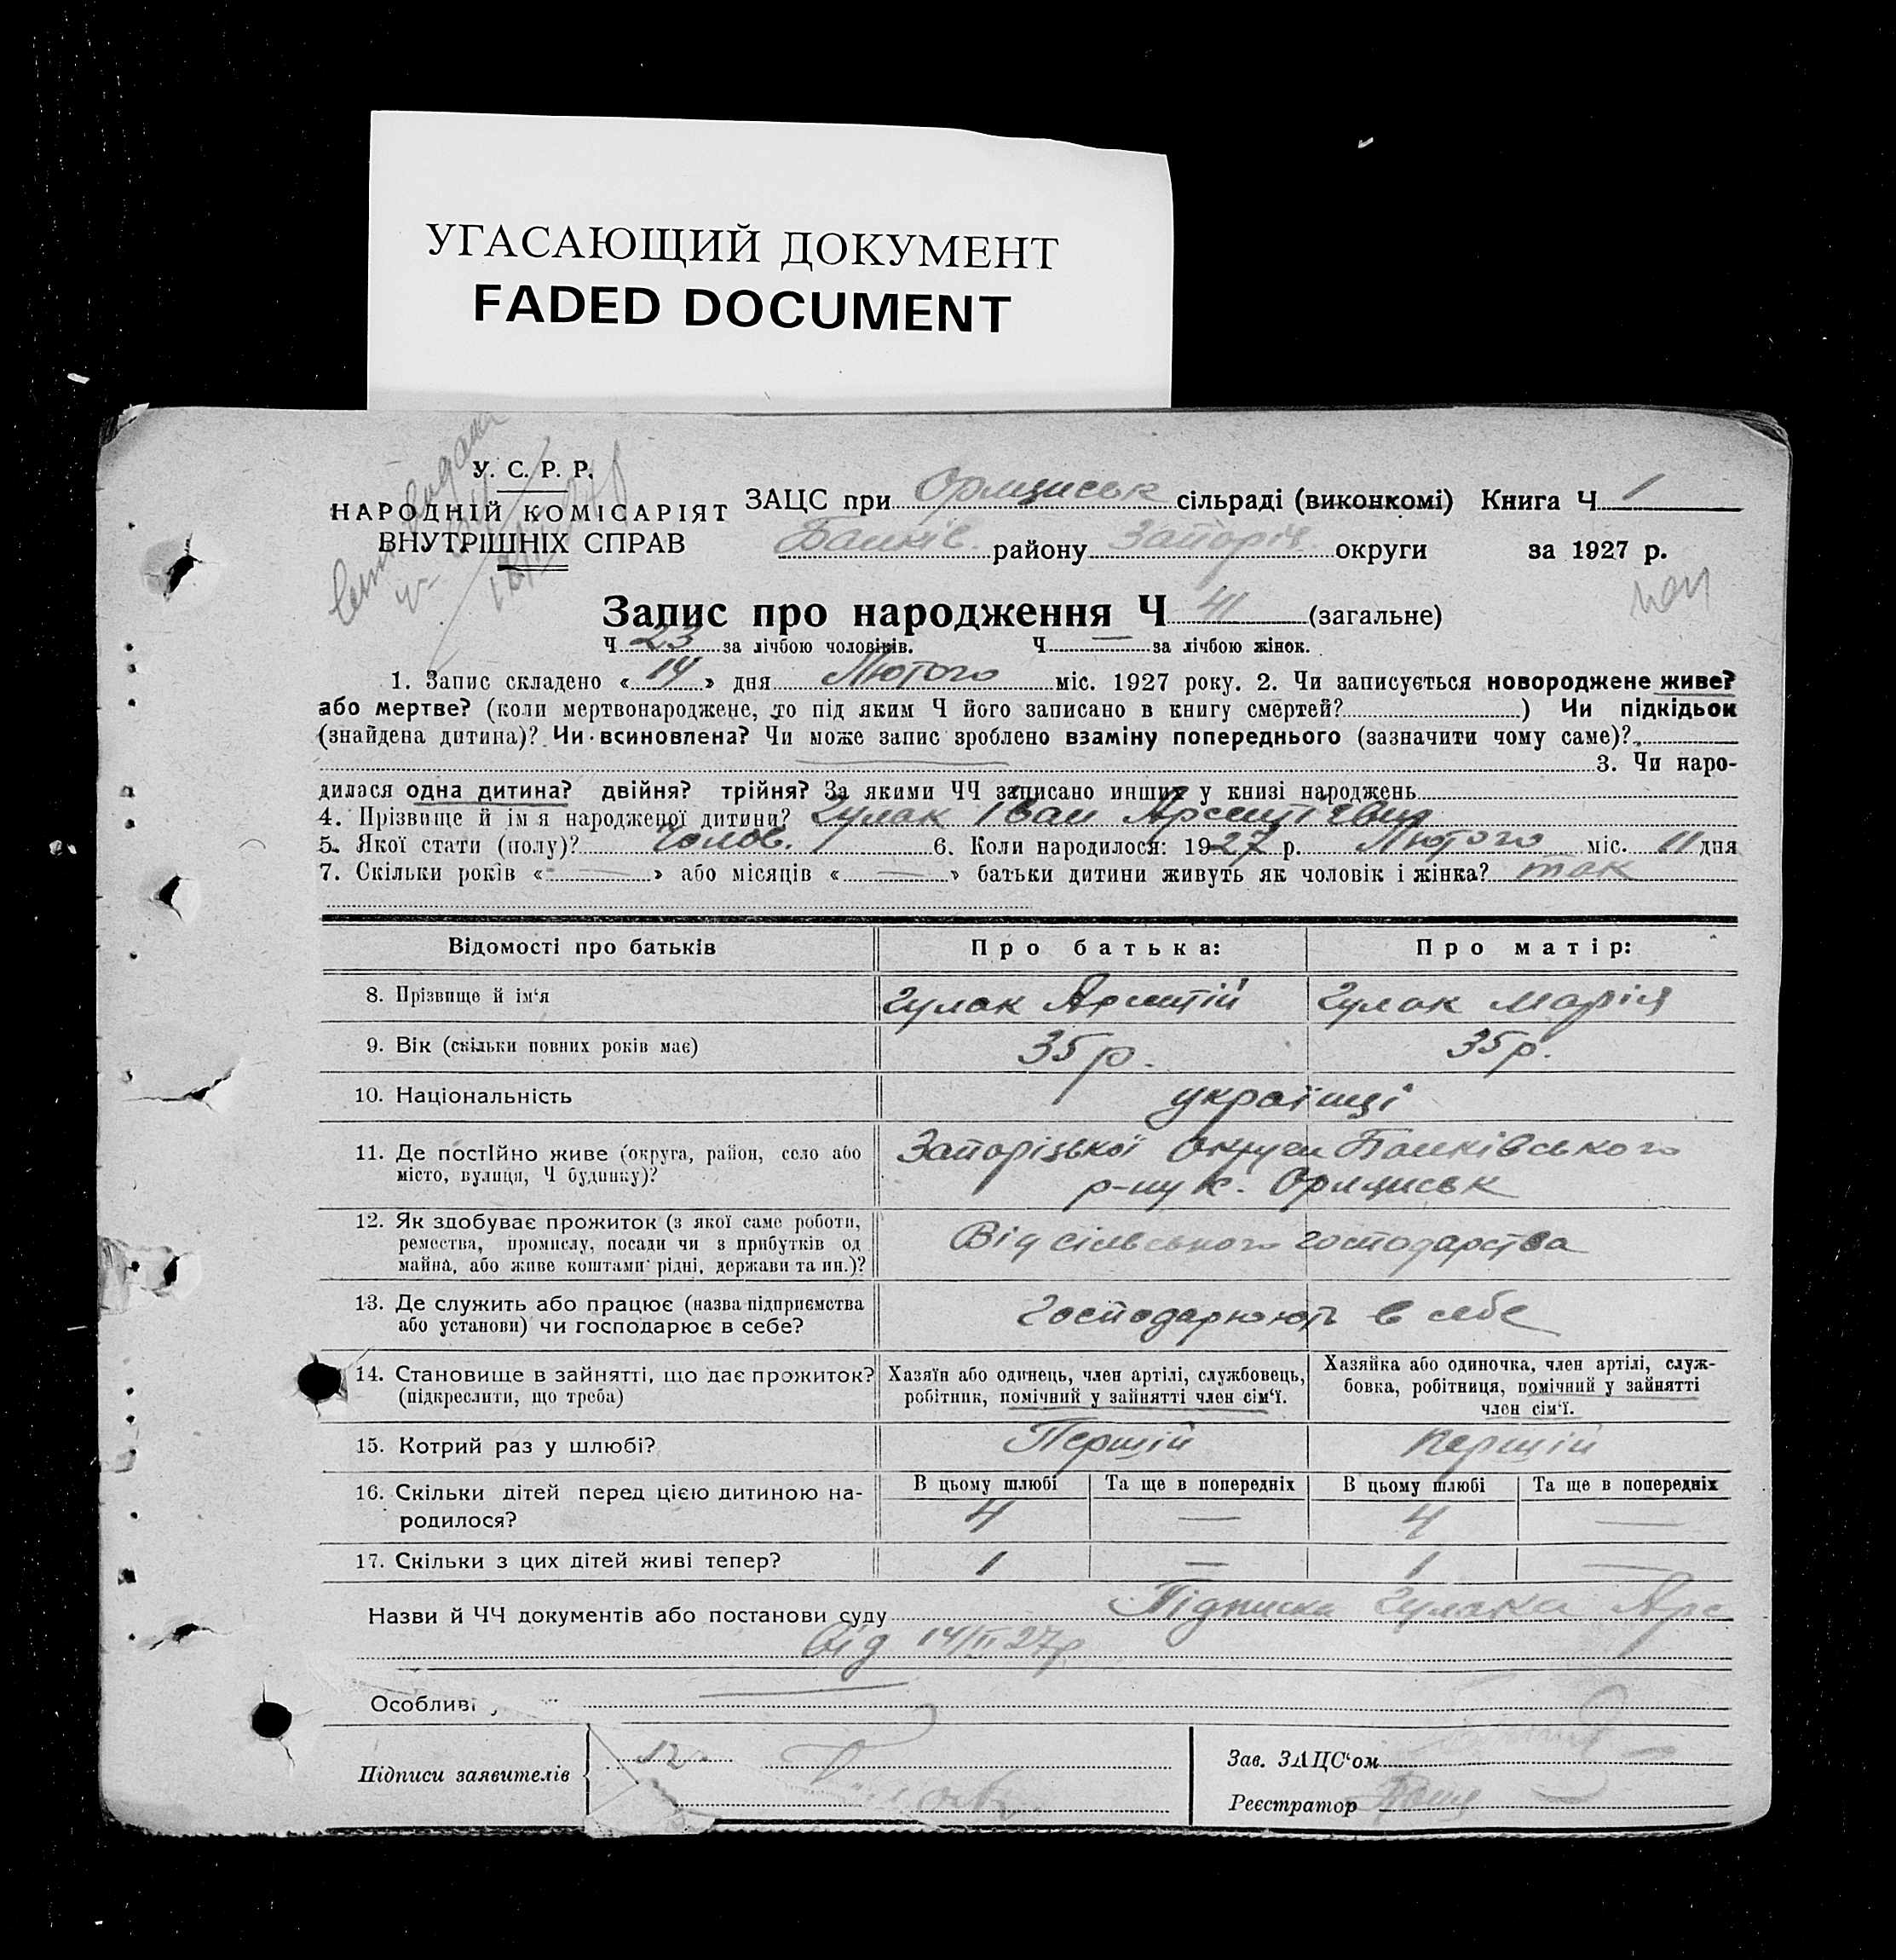 УГАСАЮЩИЙ ДОКУМЕНТ
FADED DOCUMENT
У. С. Р. Р.
НАРОДНІЙ КОМІСАРІЯТ
ВНУТРІШНІХ СПРАВ
ЗАЦС при сільраді (виконкомі) Книга Ч 1
району Запоріз. округи за 1927 р.
Запис про народження Ч 41 (загальне)
Ч 23 за лічбою чоловіків. Ч — за лічбою жінок.
1. Запис складено « 14 » дня Лютого міс. 1927 року. 2. Чи записується новороджене живе?
або мертве? (коли мертвонароджене, то під яким Ч його записано в книгу смертей? ) Чи підкідьок
(знайдена дитина)? Чи всиновлена? Чи може запис зроблено взаміну попереднього (зазначити чому саме)?
3. Чи наро-
дилася одна дитина? двійня? трійня? За якими ЧЧ записано инших у книзі народжень
4. Прізвище й ім я народженої дитини? Гулак Іван Арсентієвич
5. Якої стати (полу)? Чолов. 6. Коли народилося: 1927 р. Лютого міс. 11 дня
7. Скільки років « — » або місяців « — » батьки дитини живуть як чоловік і жінка? так
Відомості про батьків Про батька: Про матір:
8. Прізвище й ім‘я Гулак Арсентій Гулак Марія
9. Вік (скільки повних років має) 35 р. 35 р.
10. Національність українці
11. Де постійно живе (округа, район, село або
місто, вулиця, Ч будинку)?
Запорізької округи
р-ну
12. Як здобуває прожиток (з якої саме роботи,
ремества, промислу, посади чи з прибутків од
майна, або живе коштами рідні, держави та ин.)?
Від сільського господарства
13. Де служить або працює (назва підприємства
або установи) чи господарює в себе?
Господарюють в себе
14. Становище в зайнятті, що дає прожиток?
(підкреслити, що треба)
Хазяїн або одинець, член артілі, службовець,
робітник, помічний у зайнятті член сім‘ї.
Хазяйка або одиночка, член артілі, служ-
бовка, робітниця, помічний у зайнятті
член сім‘ї.
15. Котрий раз у шлюбі? Перший Перший
16. Скільки дітей перед цією дитиною на-
родилося?
В цьому шлюбі Та ще в попередніх В цьому шлюбі Та ще в попередніх
4 — 4 —
17. Скільки з цих дітей живі тепер? 1 — 1 —
Назви й ЧЧ документів або постанови суду Підписка Гулака Арс
від 14/II 27р
Особливі
Підписи заявителів
Зав. ЗАЦС‘ом
Реєстратор